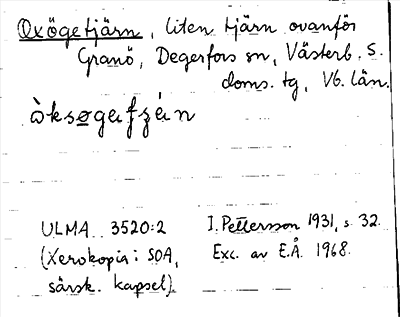 Oxögetjärn, liten tjärn ovanför
Granö, Degerfors sn, Västerb. s.
doms. tg, Vb. län.
àksøgafzá̀n
ULMA 3520:2
(Xerokopia i SOA,
särsk. kapsel)
I. Pettersson 1931, s. 32.
Exc. av E.Å. 1968.